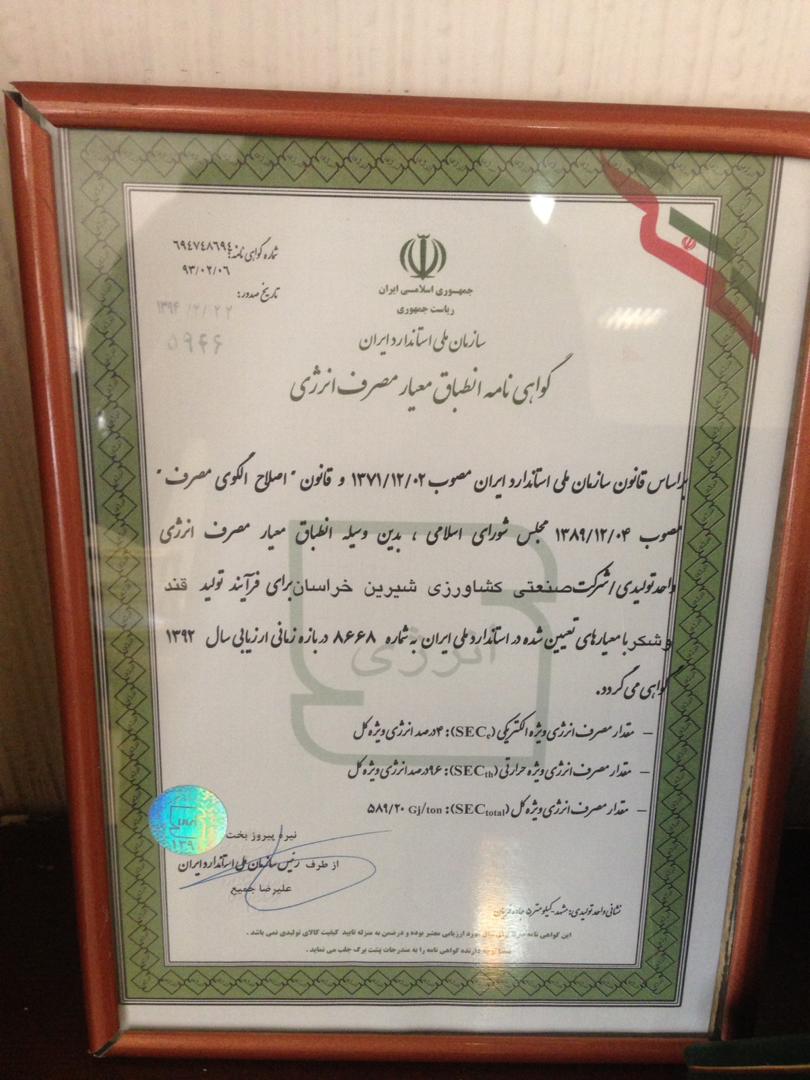 شماره گواهی نامه: ۶۹٤٧٤٨۶۹٤
۹۳/۰۲/۰۶
تاریخ صدور:
۱۳۹۴/۲/۲۲
۵۹۴۶
جمهوری اسلامی ایران
ریاست جمهوری
سازمان ملی استاندارد ایران
گواهی نامه انطباق معیار مصرف انرژی
براساس قانون سازمان ملی استاندارد ایران مصوب ۱۳۷۱/۱۲/۰۲ و قانون " اصلاح الگوی مصرف "
مصوب ۱۳۸۹/۱۲/۰۴ مجلس شورای اسلامی ، بدین وسیله انطباق معیار مصرف انرژی
واحد تولیدی/شرکت صنعتی کشاورزی شیرین خراسان برای فرآیند تولید قند
و شکر با معیارهای تعیین شده در استاندارد ملی ایران به شماره ۸۶۶۸ در بازه زمانی ارزیابی سال ۱۳۹۲
گواهی می گردد.
انرژی
– مقدار مصرف انرژی ویژه الکتریکی (SECe): ۴درصد انرژی ویژه کل
– مقدار مصرف انرژی ویژه حرارتی (SECth): ۹۶درصد انرژی ویژه کل
– مقدار مصرف انرژی ویژه کل (SECtotal): ۵۸۹/۲۰ Gj/ton
نیره پیروز بخت
از طرف رئیس سازمان ملی استاندارد ایران
علیرضا جمیع
نشانی واحد تولیدی: مشهد-کیلومتر۵ جاده
این گواهی نامه مورد ارزیابی معتبر بوده و درضمن به منزله تایید کیفیت کالای تولیدی نمی باشد .
دارنده گواهی نامه را به مندرجات پشت برگ جلب می نماید .